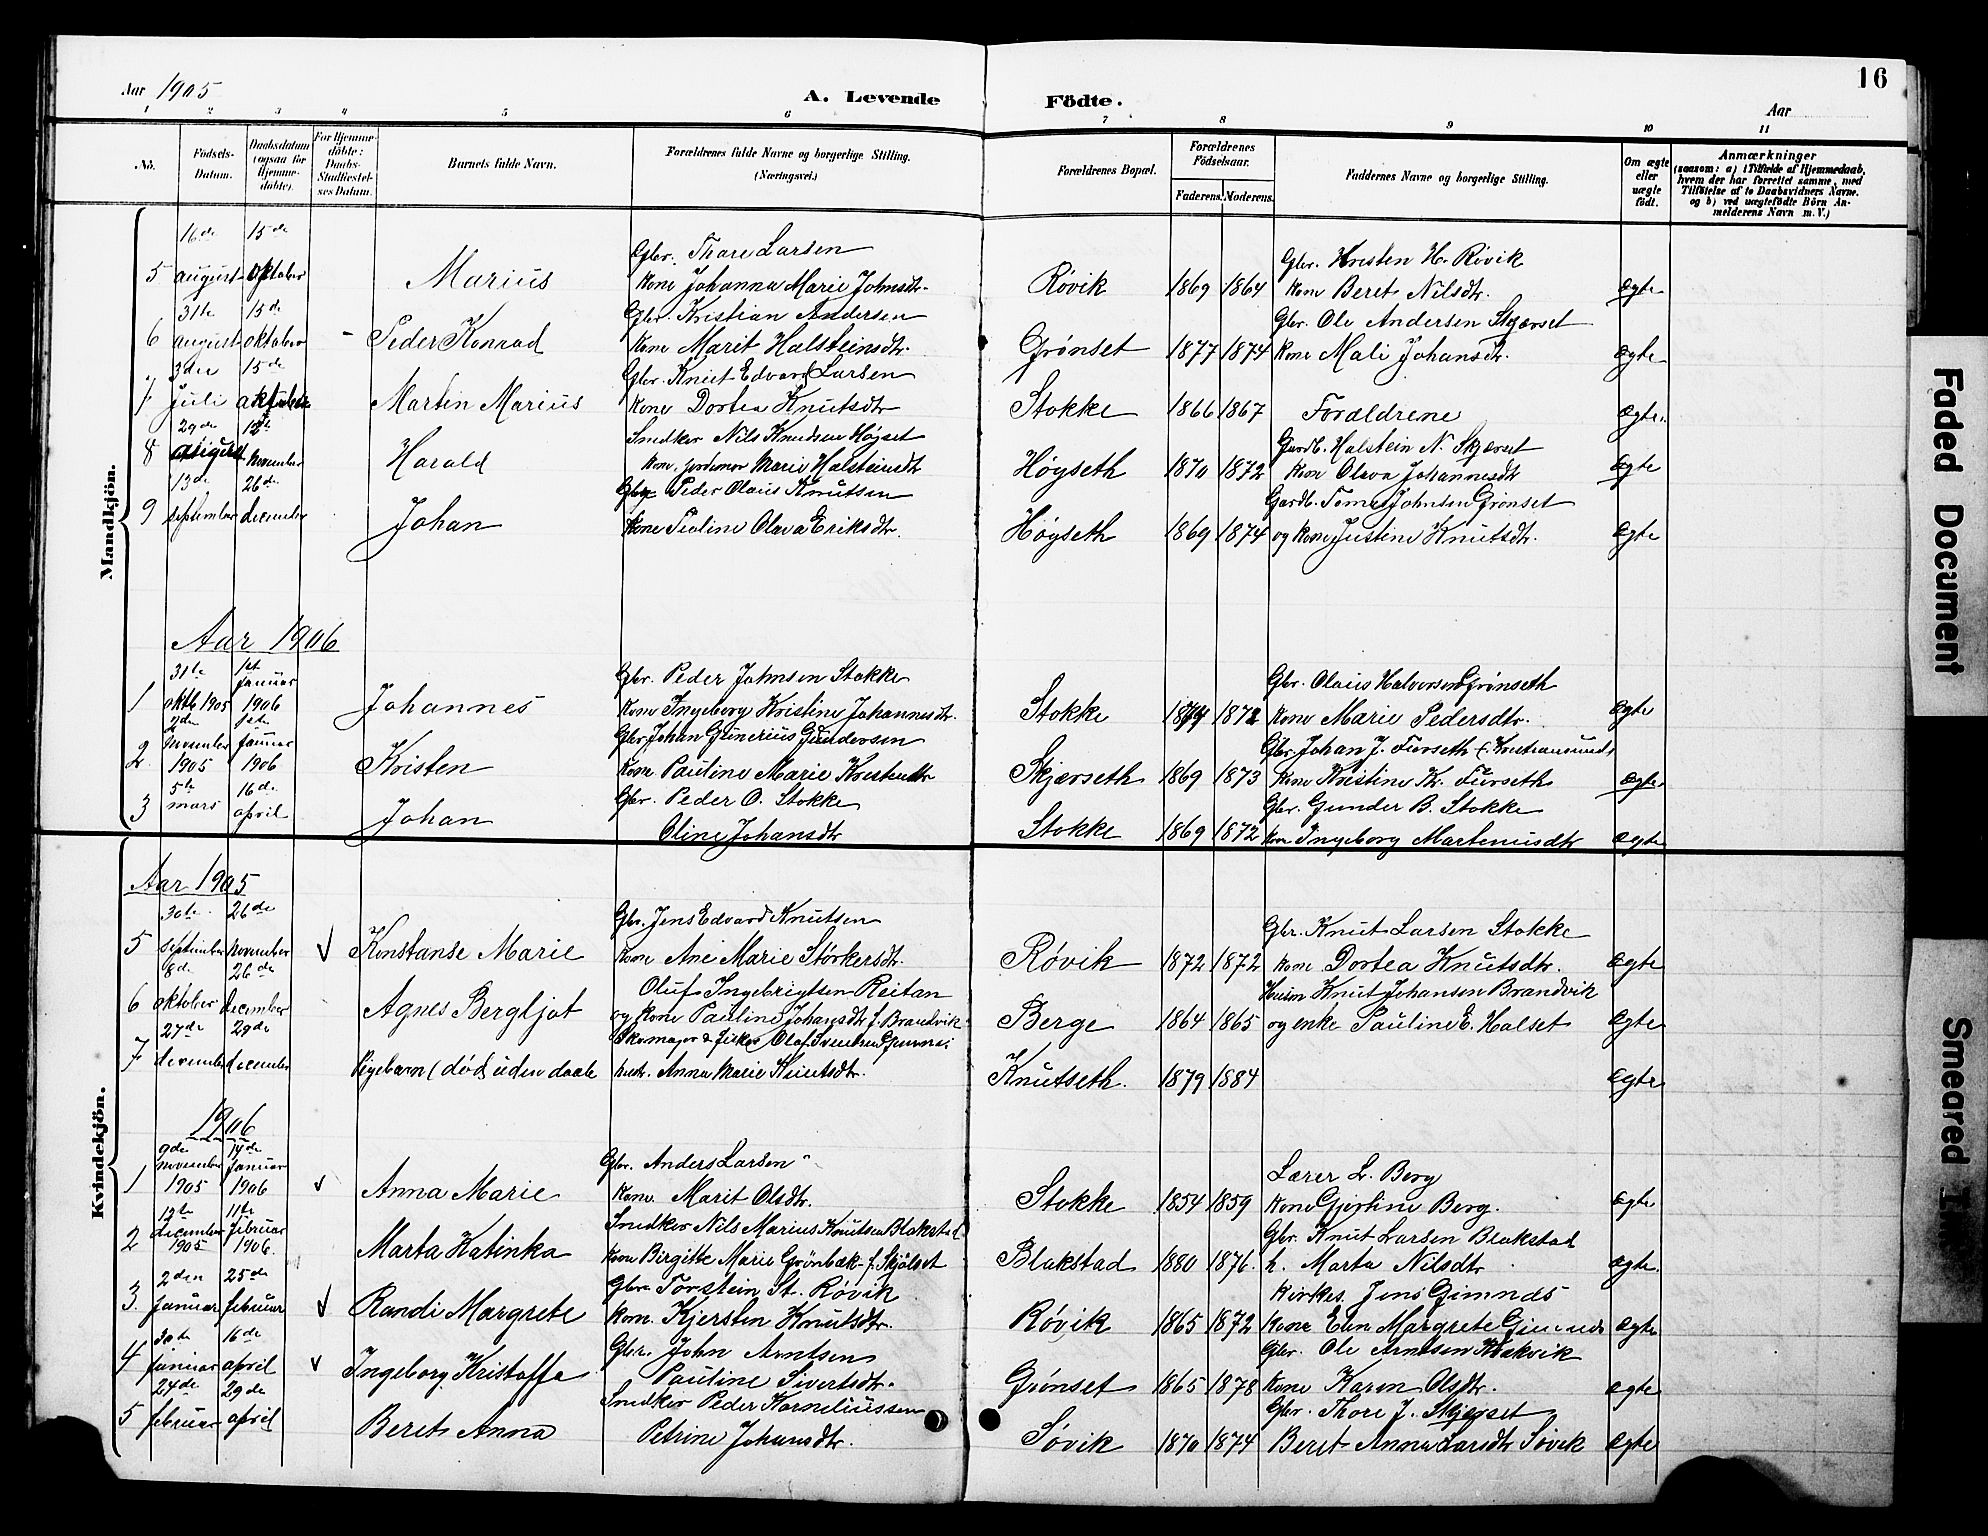 16
Aar 1905
A. Levende Födte.
Aar
1 2 3 4 5 6 7 8 9 10 11
No.
Födsels-Datum.
Daabsdatum (ogsaa for Hjemme-døbte).
For Hjemme-döbte: Daabs-Stadfæstel-ses Datum.
Barnets fulde Navn.
Forældrenes fulde Navne og borgerlige Stilling.
(Næringsvei.)
Forældrenes Bopæl.
Forældrenes Födselsaar.
Faderens. Moderens.
Faddernes Navne og borgerlige Stilling.
Om ægte eller uægte födt.
Anmærkninger
(saasom: a) i Tilfælde af Hjemmedaab, hvem der har forrettet samme, med Tilföielse af to Daabsvidners Navne, og b) ved uægtefödte Börn An-melderens Navn m.V.)
Mandkjön.
16de 15de Gbr. Thore Larsen Gbr. Kristen H. Røvik
5 august oktober Marius kone Johanna Marie Johnsdtr. Røvik 1869 1864 kone Beret Nilsdtr. ægte
31te 15de Gbr. Kristian Andersen Gbr. Ole Andersen Skjærset
6 august oktober - Peder Konrad kone Marit Halsteinsdtr. Grønset 1877 1874 kone Mali Johansdtr. ægte
3die 15de Gbr. Knut Edvard Larsen
7 juli oktober Martin Marius kone Dortea Knutsdtr Stokke 1866 1867 Forældrene ægte.
29de 12te Snedker Nils Knudsen Høyset Gardb. Halstein N. Skjærset
8 august november Harald kone, jordemor Marie Halsteinsdtr Høyseth 1870 1872 kone Olava Johannesdtr ægte
13de 26de Gbr. Peder Olaus Knutsen Gardb. Tomas Johnsen Grønset
9 september december Johan kone Pauline Olava Eriksdtr. Høyseth 1869 1874 og kone Justine Knutsdtr. ægte
Aar 1906
31te 1st januar Gbr. Peder Johnsen Stokke Gbr. Olaus Halvorsen Grønseth
1 oktb 1905 1906 Johannes kone Ingeborg Kristine Johannesdtr. Stokke 1872 kone Marie Pedersdtr. ægte
2de november 1ste januar Gbr. Johan Gunerius Gundersen Gbr. Johan J. Furseth (Kristiansund)
2 1905 1906 Kristen kone Pauline Marie Kristensdtr Skjærseth 1869 1873 kone Kristine Kr. Furseth ægte
5te 16de Gbr. Peder O. Stokke Gbr. Gunder B. Stokke
3 mars april Johan Oline Johansdtr Stokke 1869 1872 kone Ingeborg Martinusdtr ægte
Kvindekjön.
Aar 1905
30te 26de Gbr. Jens Edvard Knutsen Gbr. Knut Larsen Stokke
5 september november √ Konstanse Marie kone Ane Marie Størkersdtr. Røvik 1872 1872 kone Dortea Knutsdtr. ægte
8de 26de Oluf Ingebrigtsen Reitan Husm Knut Johansen Brandvik
6 oktober december Agnes Bergljot og kone Pauline Johansdtr f. Brandvik Berge 1864 1865 og enke Pauline E. Halset ægte
27de 29de Skomager & fisker Olaf
7 december december Pigebarn (død) uden daab hustr. Anna Marie Knutsdtr. Knutseth. 1879 1884 ægte
1906
9de november 14de januar Gbr. Anders Larsen Lærer L. Berg
1 1905 1906 √ Anna Marie kone Marit Olsdtr. Stokke 1854 1859 kone Gjertine Berg. ægte
12te december 11te februar Snedker Nils Marius Knutsen Blakstad Gbr. Knut Larsen Blakstad
2 1905 1906. Marta Katinka kone Birgitte Marie Grønbæk f. Skjølset Blakstad 1880 1876. h. Marta Nilsdtr ægte.
2den 25de Gbr. Torstein St. Røvik Kirkes. Jens Gimnes
3. januar februar √ Randi Margrete kone Kjersten Knutsdtr. Røvik 1865 1872 kone Elen Margrete Gimnes ægte
30te 16de Gbr. John Arntsen Gbr. Ole Arntsen
4 januar april √ Ingeborg Kristoffa Pauline Sivertsdtr. Grønset 1865 1878 kone Karen Olsdtr. ægte
24de 29de Snedker Peder Korneliussen Gbr. Thore J. Skjerset
5 februar april Beret Anna Petrine Johansdtr. Søvik 1870 1874 Beret Anna Larsdtr Søvik ægte
Faded Document
Smeared